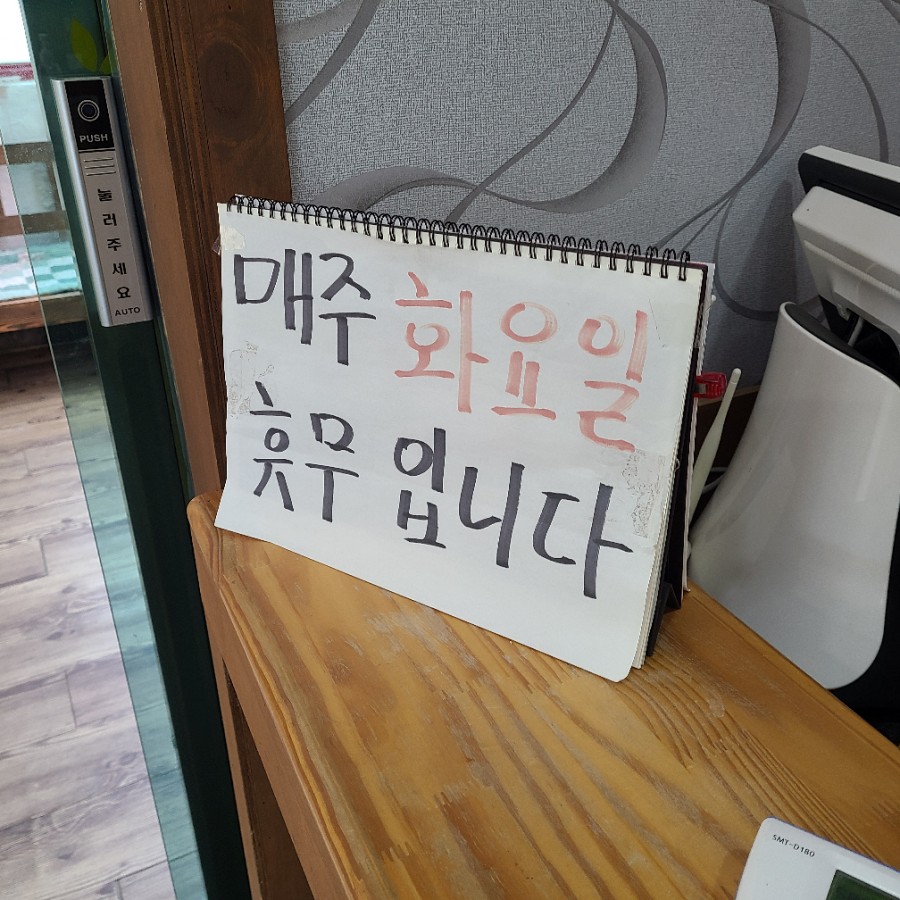 PUSH
눌러주세요
AUTO
매주 화요일
휴무 입니다
SMT-D180